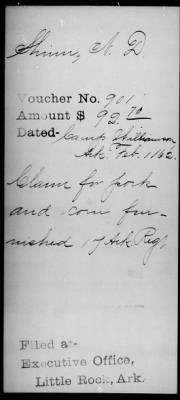 Shinn, A. D
Voucher No. 901
Amount $ 92.70
Dated- Camp Williamson
Ark. Feb. 1, 1862.
Claim for pork
and corn fur-
nished 17 Ark Regt,
Filed at-
Executive Office,
Little Rock, Ark.